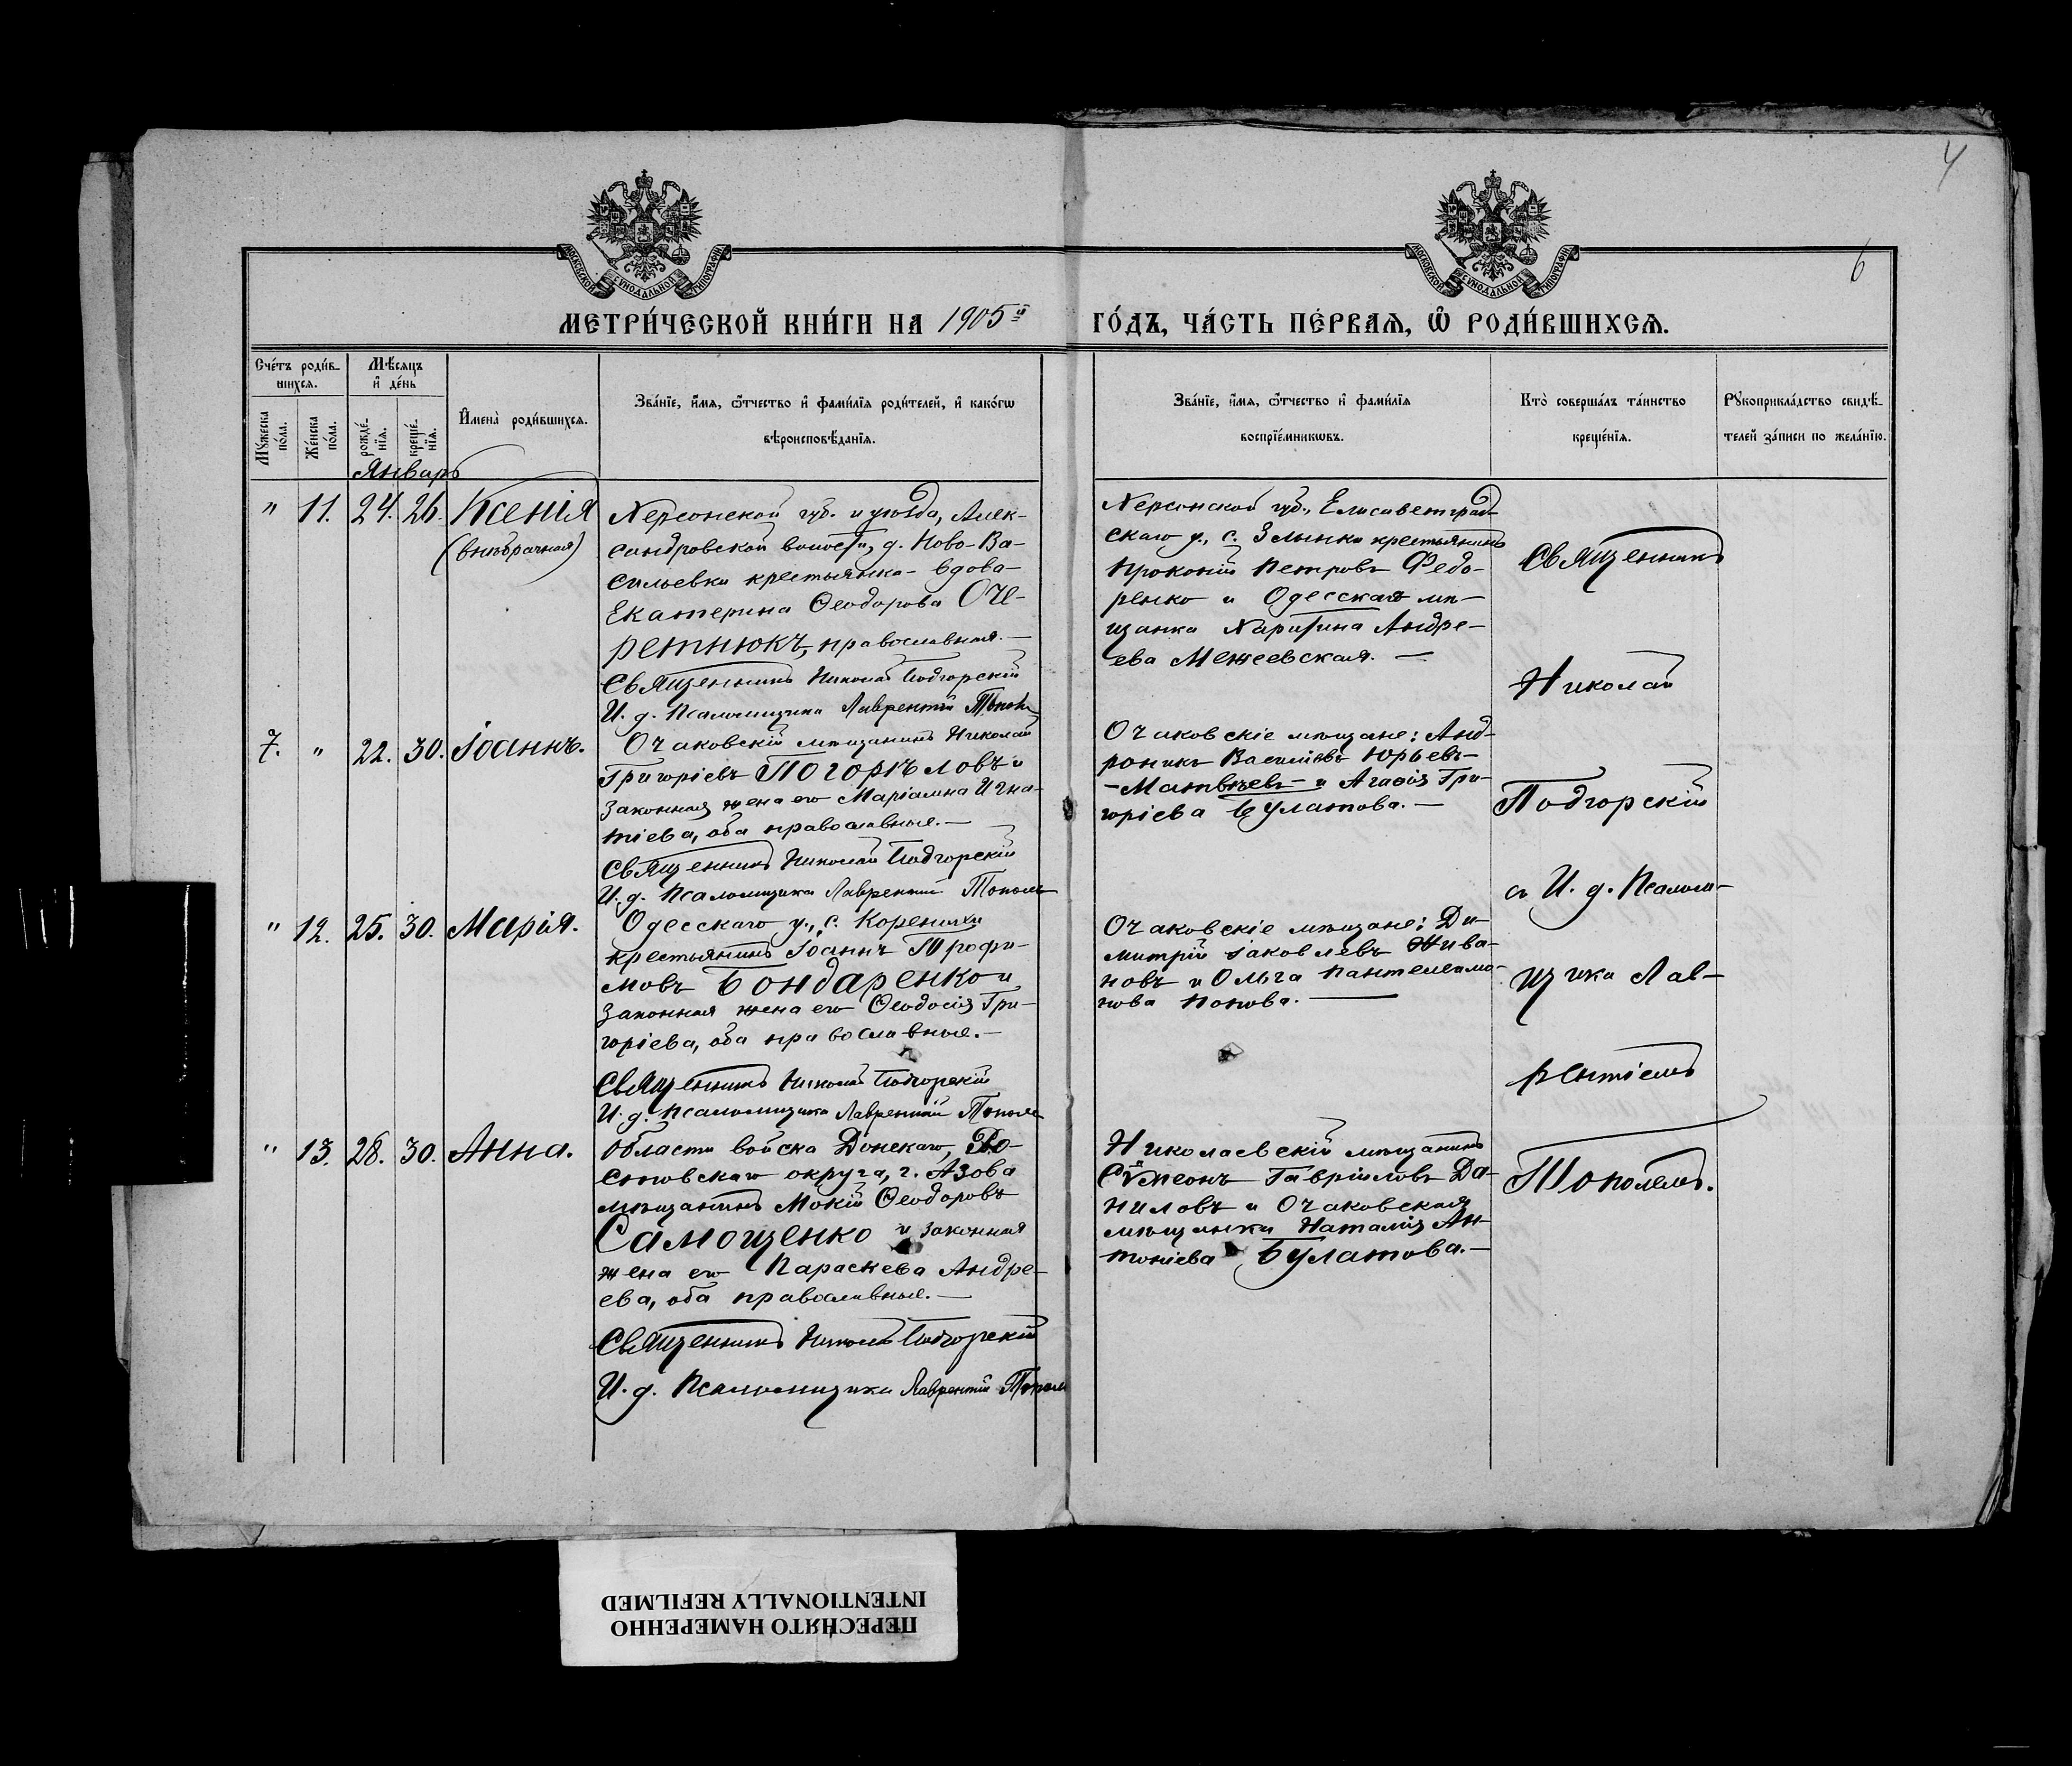 4
6
МОСКОВСКОЙ СѴНОДАЛЬНОЙ ТИПОГРАФІИ
МОСКОВСКОЙ СѴНОДАЛЬНОЙ ТИПОГРАФІИ
МЕТРИ́ЧЕСКОЙ КНИ́ГИ НА 1905й ГО́ДЪ, ЧА́СТЬ ПЕ́РВАЯ, Ѡ҆ РОДИ́ВШИХСЯ.
Сче́тъ роди́в-
шихся.
Мꙋ́жеска по́ла.
Же́нска по́ла.
Мѣ́сяцъ
и҆ де́нь
рожде́-
нїя.
креще́-
нїя.
И҆мена̀ роди́вшихся.
Зва́нїе, и҆́мя, ѻ҆́тчество и҆ фами́лїя роди́телей, и҆ како́гѡ
вѣроисповѣ́данїя.
Зва́нїе, и҆́мя, ѻ҆́тчество и҆ фами́лїя
воспрїе́мникѡвъ.
Кто̀ соверша́лъ та́инство
креще́нїя.
Рꙋкоприкла́дство свидѣ́-
телей за́писи по жела́нїю.
Январь
" 11. 24. 26. Ксенія
(внѣбрачная)
Херсонской губ. и уѣзда, Алек-
сандровской волости, д. Ново-Ва-
сильевки крестьянка-вдова
Екатерина Ѳеодорова Оче-
ретнюкъ, православная.—
Священникъ Николай Подгорскій
И. д. Псаломщика Лаврентій Тополь
Херсонской губ., Елисаветград-
скаго у., с. Злынки крестьянинъ
Прокопій Петровъ Федо-
ренко и Одесская мѣ-
щанка Харитина Андре-
ева Межеевская.—
7. " 22. 30. Іоаннъ.
Очаковскій мѣщанинъ Николай
Григоріевъ Погорѣловъ и
законная жена его Маріамна Игна-
тіева, оба православные.—
Священникъ Николай Подгорскій
И. д. Псаломщика Лаврентій Тополь
Очаковскіе мѣщане: Анд-
роникъ Василіевъ Юрьевъ-
-Матвѣевъ- и Агаѳія Гри-
горіева Булатова.—
" 12. 25. 30. Марія.
Одесскаго у., с. Коренихи
крестьянинъ Іоаннъ Трофи-
мовъ Бондаренко и
законная жена его Ѳеодосія Гри-
горіева, оба православные.—
Священникъ Николай Подгорскій
И. д. Псаломщика Лаврентій Тополь
Очаковскіе мѣщане: Ди-
митрій Іаковлевъ Жива-
новъ и Ольга Пантелеимо-
нова Попова.—
" 13. 28. 30. Анна.
Области войска Донскаго, Ро-
стовскаго округа, г. Азова
мѣщанинъ Мокій Ѳеодоровъ
Самощенко и законная
жена его Параскева Андре-
ева, оба православные.—
Священникъ Николай Подгорскій
И. д. Псаломщика Лаврентій Тополь
Николаевскій мѣщанинъ
Сѵмеонъ Гавріиловъ Да-
ниловъ и Очаковская
мѣщанка Наталія Ан-
тоніева Булатова.—
Священникъ
Николай
Подгорскій
съ И. д. Псалом-
щика Лав-
рентіемъ
Тополемъ.
ПЕРЕСНЯТО НАМЕРЕННО
INTENTIONALLY REFILMED